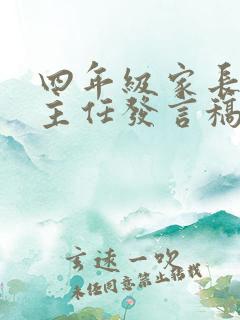 四年級家長
主任發言稿
玄逺一吹
未经同意禁止搭载